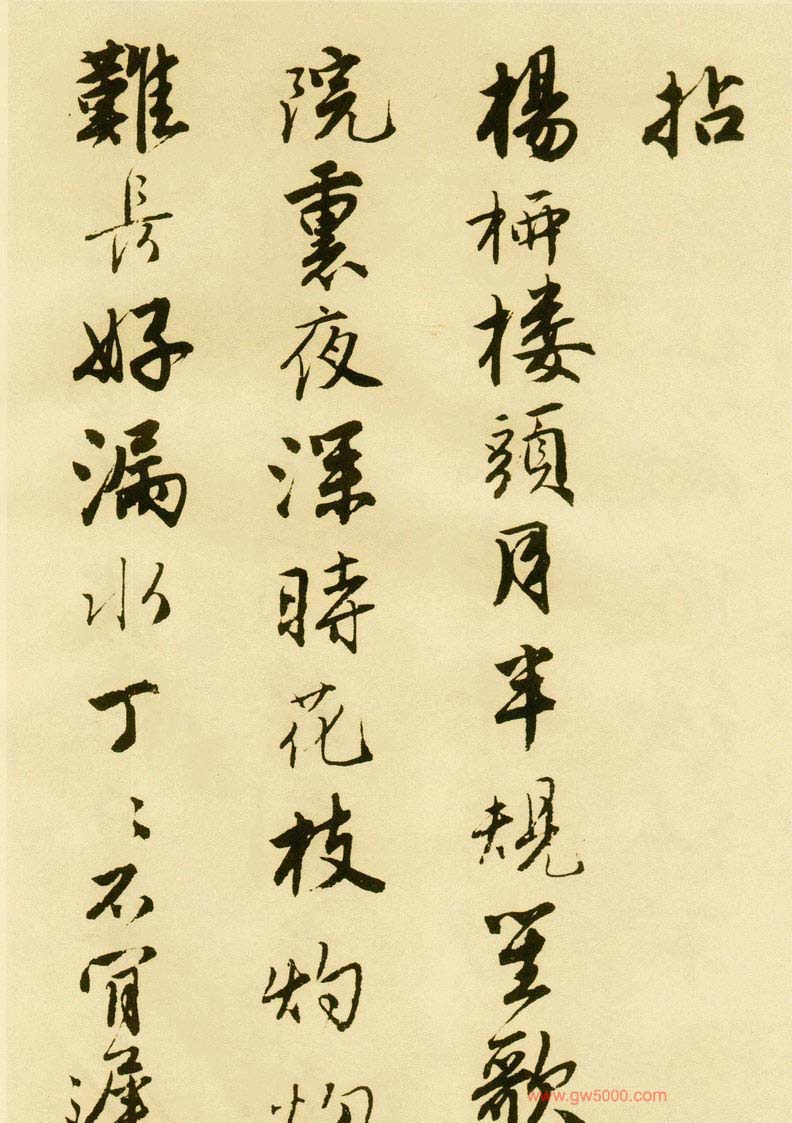 拈
楊柳楼頭月半規笙歌
院裏夜深時花枝灼灼
難長好漏水丁〻不肯遲
www.gw5000.com